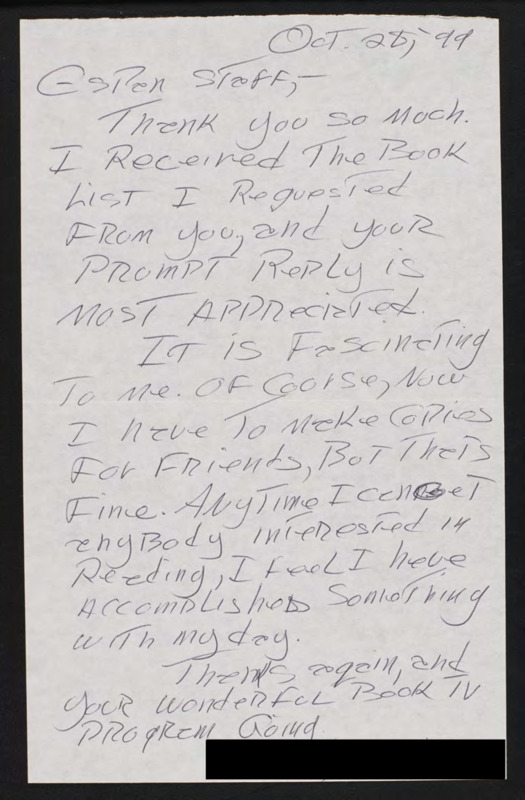 Oct. 25, '99
CsPan Staff,-
Thank you so much.
I Received The Book
List I Requested
From you, and your
Prompt Reply is
most Appreciated.
It is Fascinating
To me. Of Coorse, Now
I have To make Copies
For Friends, But That's
Fine. Anytime I can get
anyBody interested in
Reading, I feel I have
Accomplished Something
with my day.
Thanks again, and
your wonderful Book TV
Program Going.